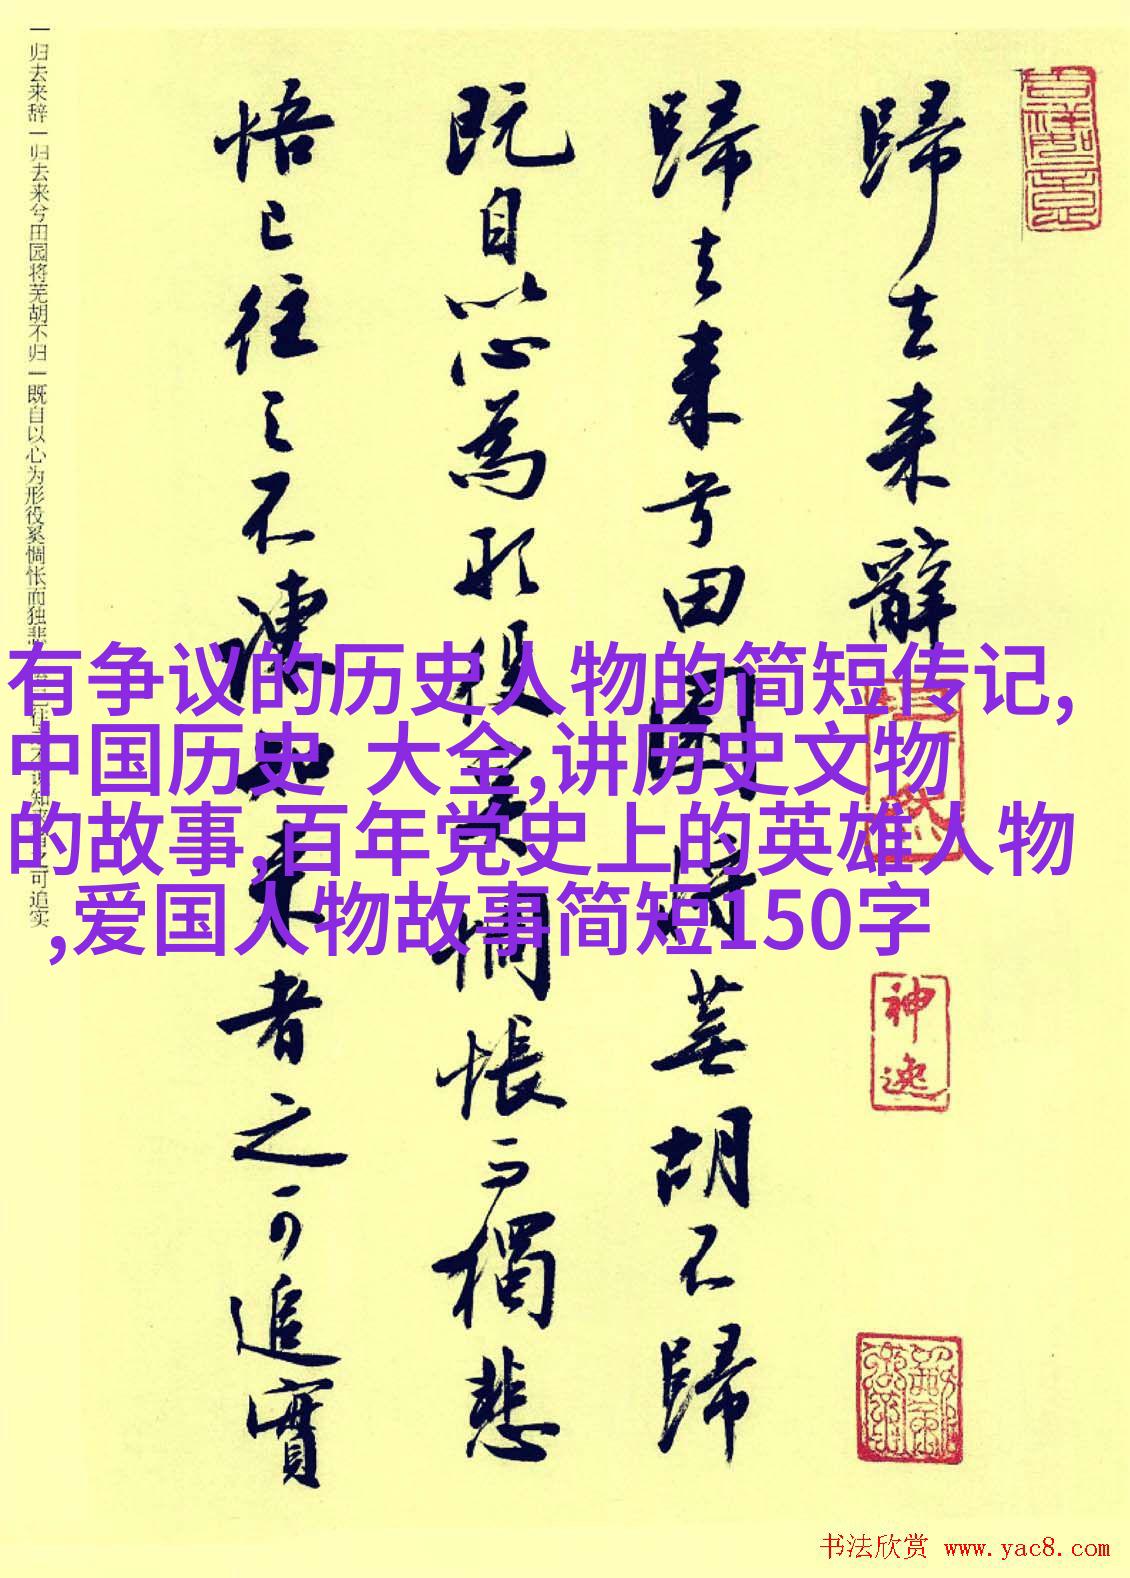 歸去来辭
歸去来兮田園将蕪胡不歸
既自以心為形役奚惆悵而獨悲
悟已往之不諫知来者之可追實
神逸
一归去来辞一归去来兮田园将芜胡不归一既自以心为形役奚惆怅而独悲
可追实
有争议的历史人物的简短传记,
中国历史 大全,讲历史文物
的故事,百年党史上的英雄人物
,爱国人物故事简短150字
书法欣赏 www.yac8.com